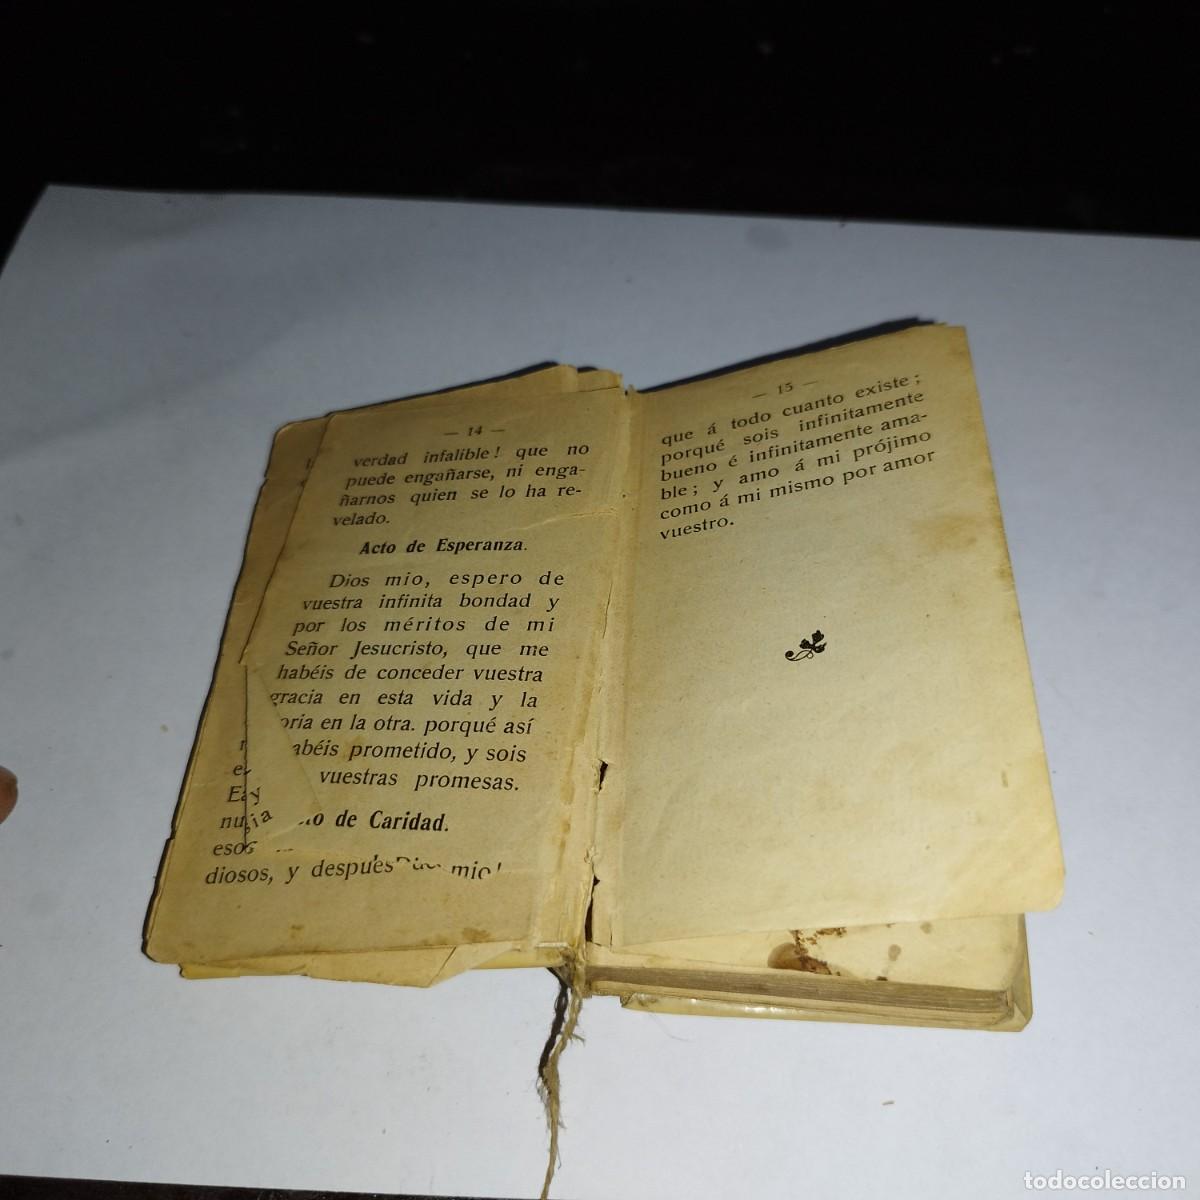 — 14 —
verdad infalible! que no
puede engañarse, ni enga-
ñarnos quien se lo ha re-
velado.
Acto de Esperanza.
Dios mio, espero de
vuestra infinita bondad y
por los méritos de mi
Señor Jesucristo, que me
habéis de conceder vuestra
gracia en esta vida y la
oria en la otra. porqué así
abéis prometido, y sois
vuestras promesas.
to de Caridad.
diosos, y después mio!
— 15 —
que á todo cuanto existe;
porqué sois infinitamente
bueno é infinitamente ama-
ble; y amo á mi prójimo
como á mi mismo por amor
vuestro.
todocoleccion